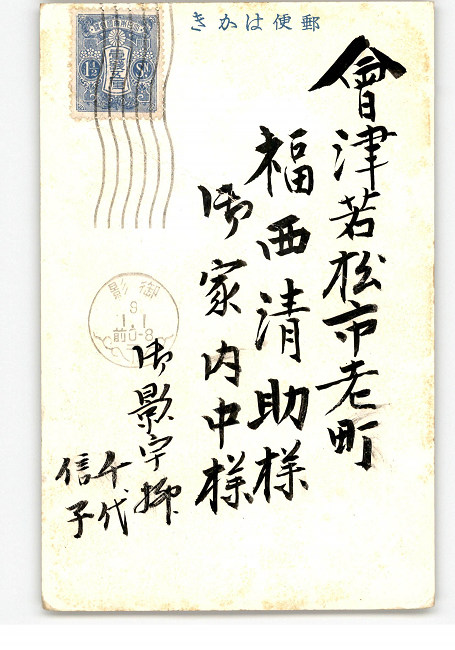 郵便はかき
會津若松市老町
福西清助様
御家内中様
御影字柳
千代
信子
1½ Sn.
壹錢五厘
御影
9
1.1
前0-8